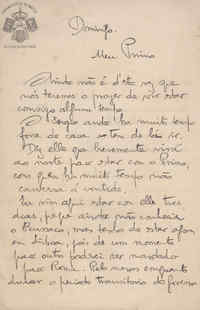 Domingo.
Meu Primo
Ainda não é d'esta vez, que
nós teremos o prazer de vir estar
comsigo algum tempo.
O Sergio anda ha muito tempo
fora de casa e tem de lá ir.
Diz elle que brevemente virá
ao norte para estar com o Primo,
com quem ha muito tempo não
conversa á vontade.
Eu vim aqui estar com elle tres
dias, pois ainda não conhecia
o Bussaco, mas tenho de estar
em Lisboa, pois de um momento
para outro poderei ser mandado
para Pelo menos emquanto
durar o periodo transitorio do governo